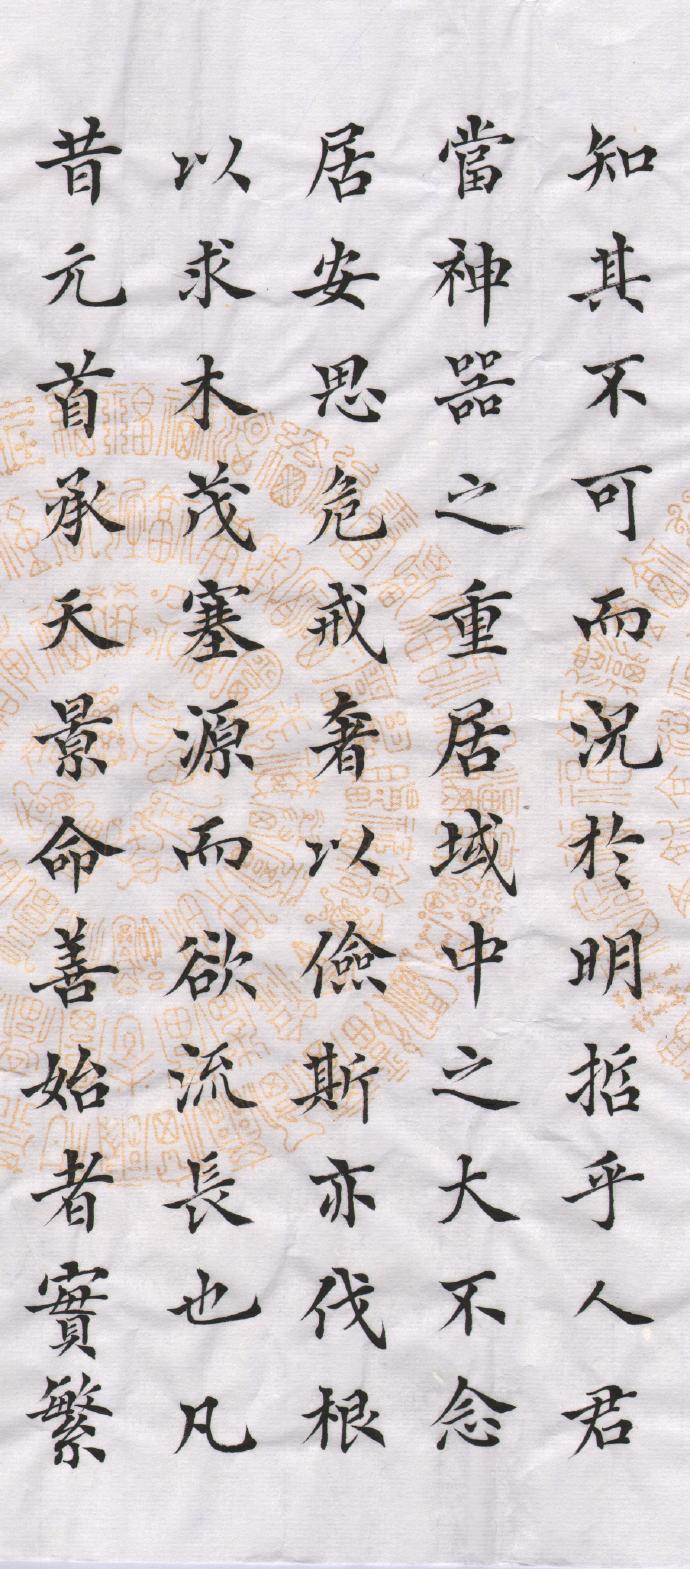 知其不可而況於明哲乎人君
當神器之重居域中之大不念
居安思危戒奢以儉斯亦伐根
以求木茂塞源而欲流長也凡
昔元首承天景命善始者實繁